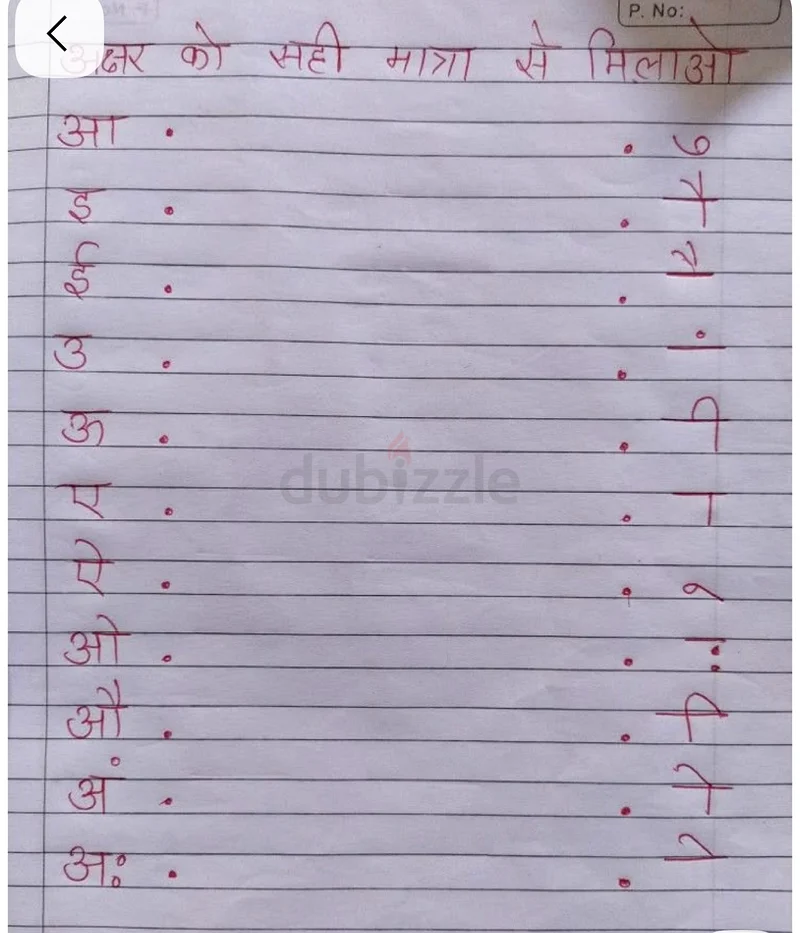 P. No:
अक्षर को सही मात्रा से मिलाओ
आ . . ु
इ . . ौ
ई . . ै
उ . . ं
ऊ . . ी
ए . . ा
ऐ . . ू
ओ . . ः
औ . . ि
अं . . ो
अः . . े
dubizzle